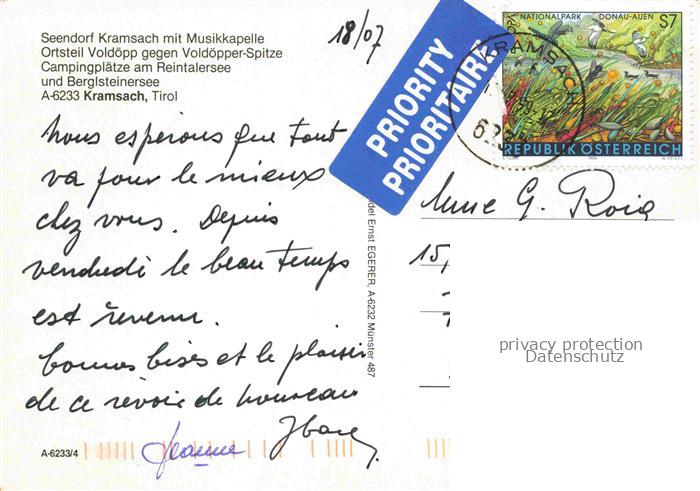 Seendorf Kramsach mit Musikkapelle
Ortsteil Voldöpp gegen Voldöpper-Spitze
Campingplätze am Reintalersee
und Berglsteinersee
A-6233 Kramsach, Tirol
18/07
Nous espérons que tout
va pour le mieux
chez vous. Depuis
vendredi le beau temps
est revenu.
bonnes bises et le plaisir
de ce revoir de nouveau
Jeanne
A-6233/4
del Ernst EGERER, A-6232 Münster 487
PRIORITY
PRIORITAIRE
NATIONALPARK DONAU-AUEN S7
REPUBLIK ÖSTERREICH
KRAMSA
623
Mme G. Roig
15,
privacy protection
Datenschutz